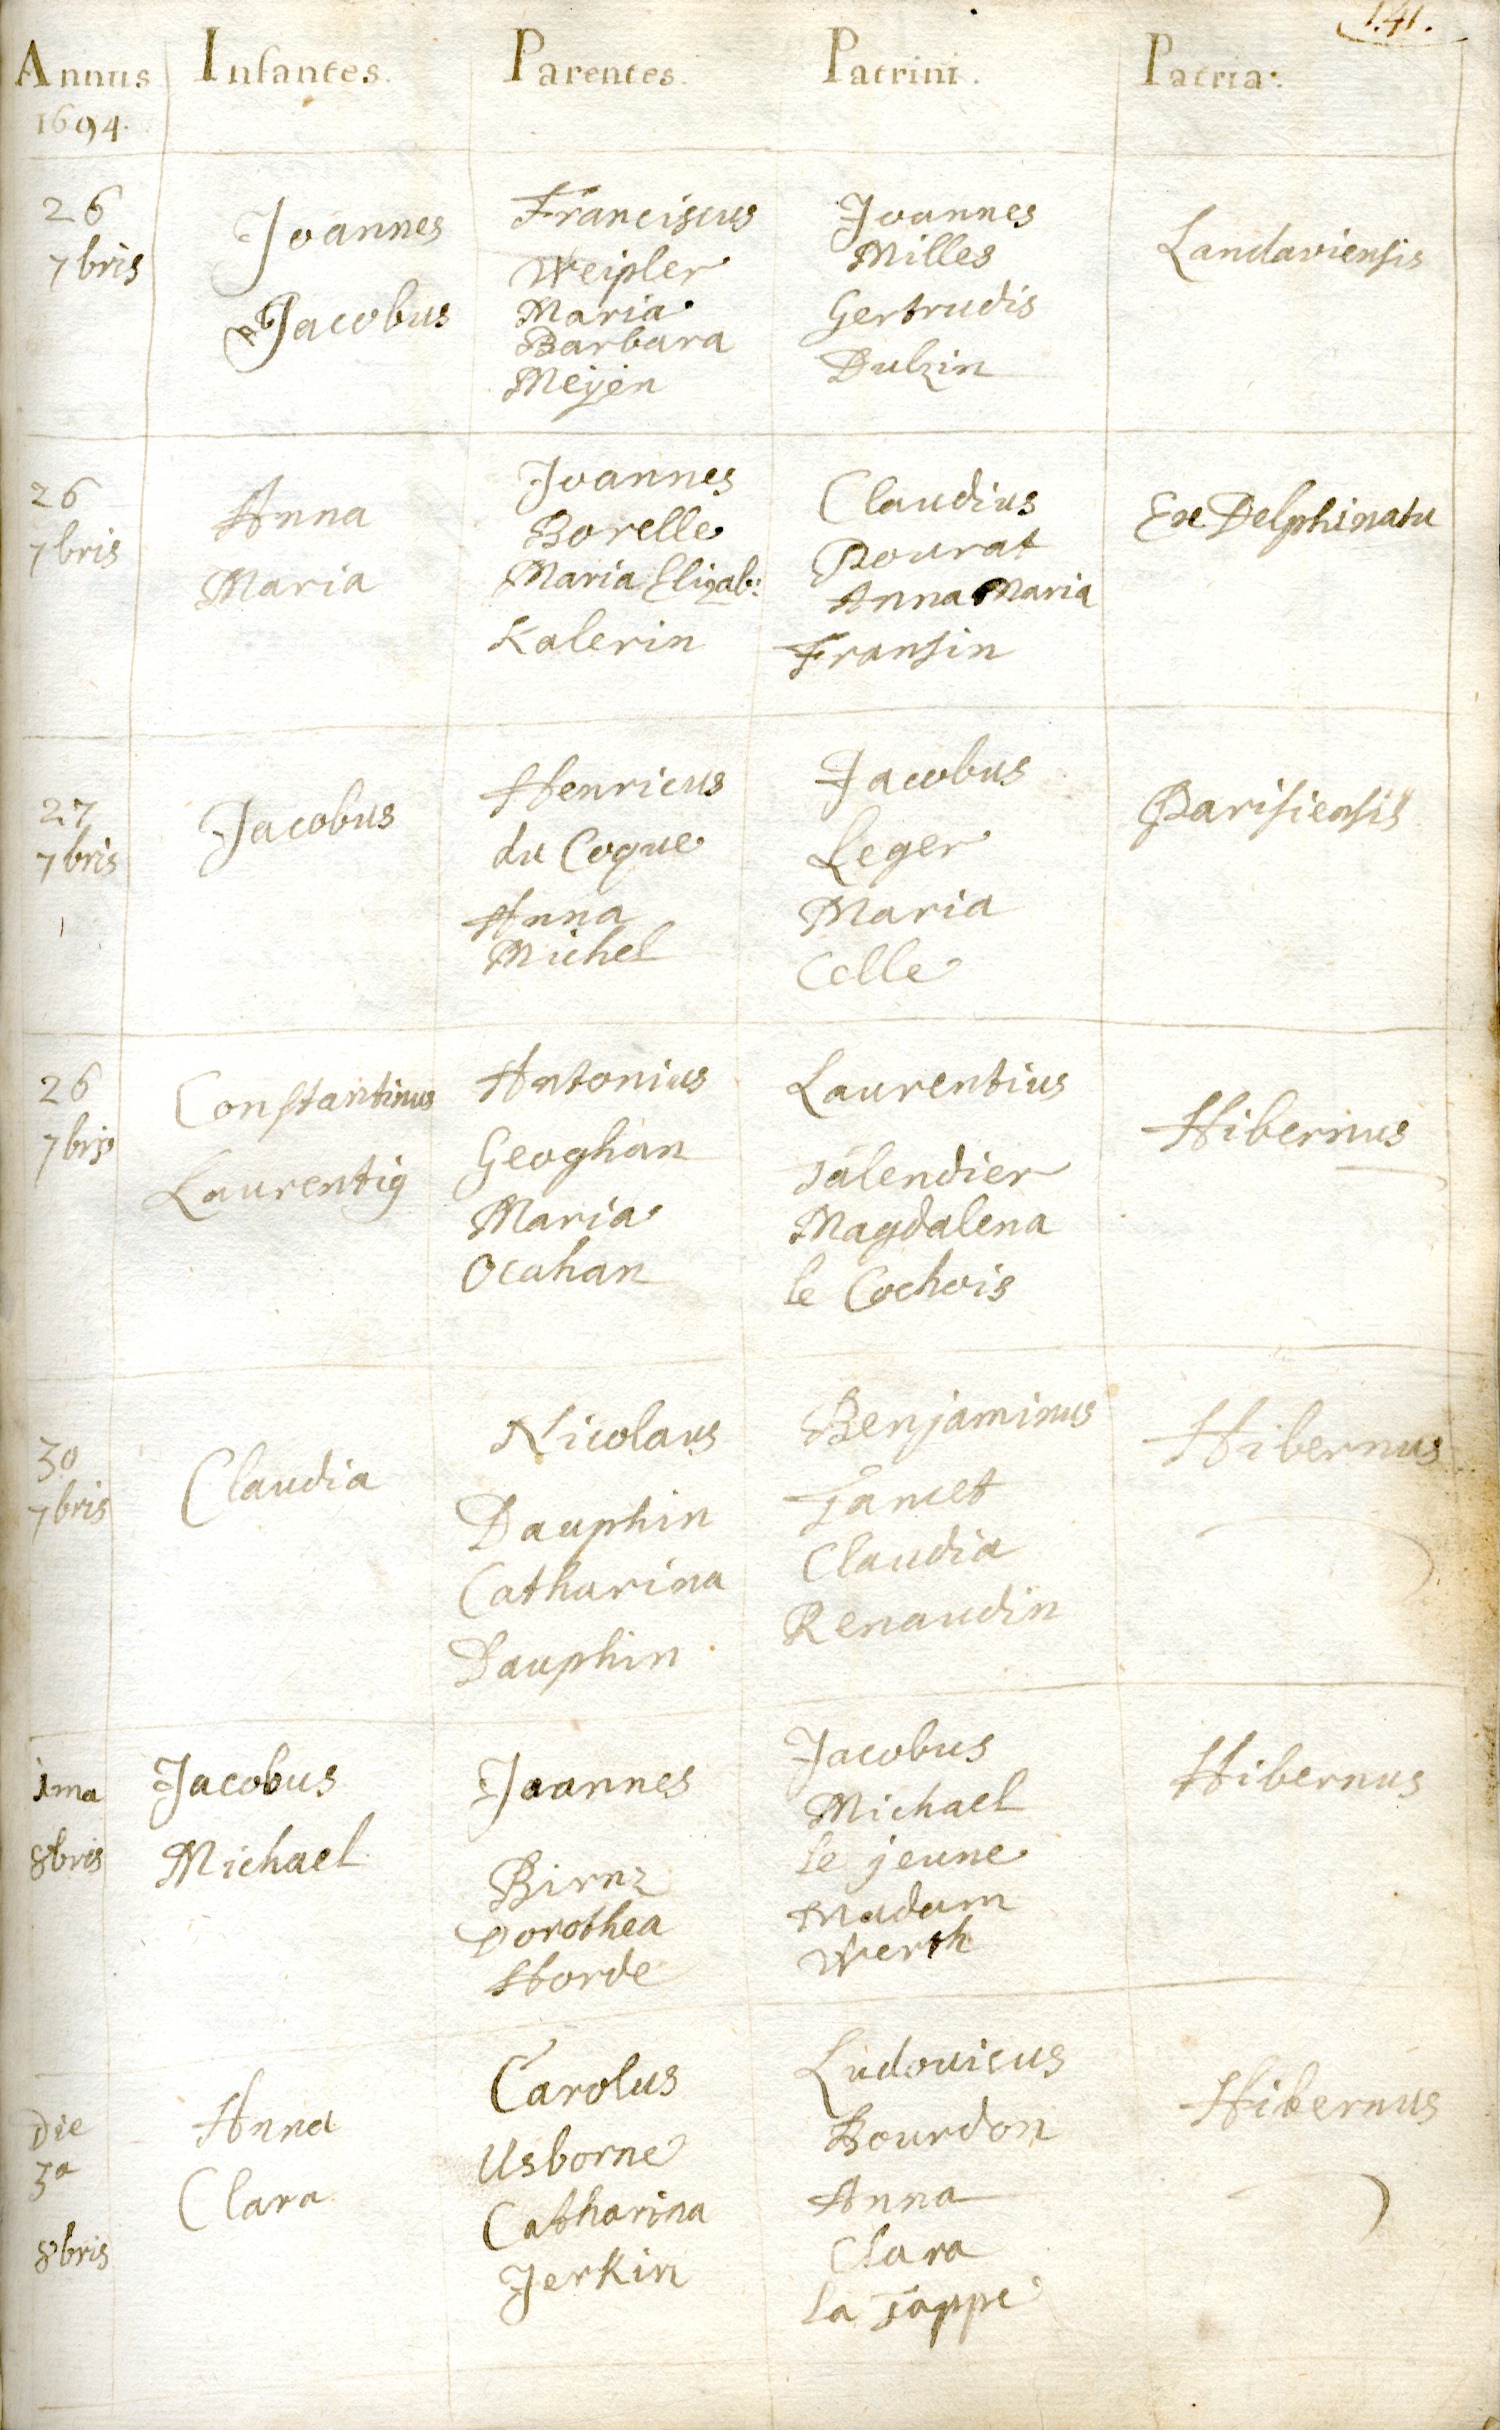 141.
Annus Infantes. Parentes. Patrini. Patria:
1694.
26
7bris
Joannes
Jacobus
Franciscus
Weipler
Maria
Barbara
Meijen
Joannes
Milles
Gertrudis
Dulzin
Landaviensis
26
7bris
Anna
Maria
Joannes
Borelle
Maria Elizab:
Kalerin
Claudius
Pourat
Anna Maria
Fransin
Ex Delphinatu
27
7bris
Jacobus
Henricus
du Coque
Anna
Michel
Jacobus
Leger
Maria
Celle
Parisiensis
26
7bris
Constantinus
Laurentig
Antonius
Geoghan
Maria
Ocahan
Laurentius
Talendier
Magdalena
le Cochois
Hibernus
30
7bris
Claudia
Nicolaus
Dauphin
Catharina
Dauphin
Benjaminus
Claudia
Renaudin
Hibernus
1ma
8bris
Jacobus
Michael
Joannes
Birnz
Dorothea
Horde
Jacobus
Michael
le jeune
Madam
Werth
Hibernus
Die
3a
8bris
Anna
Clara
Carolus
Usborne
Catharina
Jerkin
Ludovicus
Bourdon
Anna
Clara
la Tappe
Hibernus